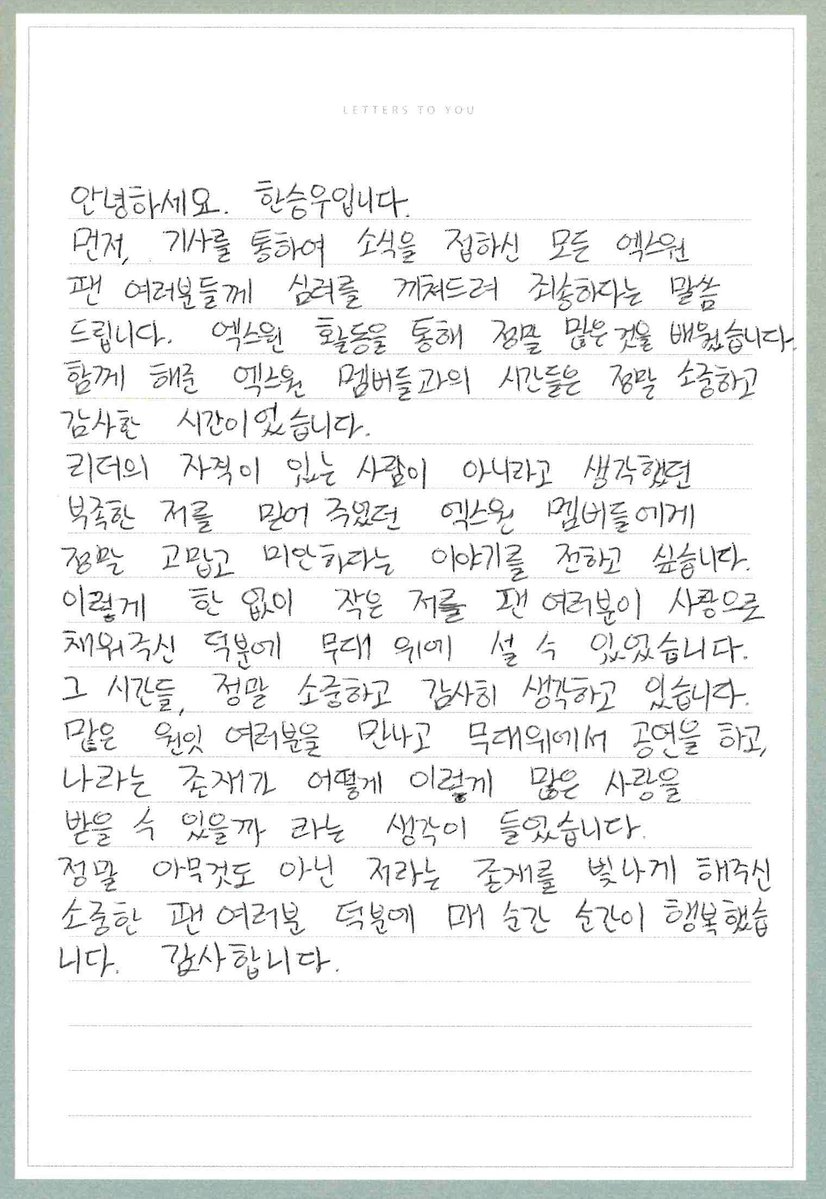 LETTERS TO YOU
안녕하세요. 한승우입니다.
먼저, 기사를 통하여 소식을 접하신 모든 엑스원
팬 여러분들께 심려를 끼쳐드려 죄송하다는 말씀
드립니다. 엑스원 활동을 통해 정말 많은것을 배웠습니다.
함께 해준 엑스원 멤버들과의 시간들은 정말 소중하고
감사한 시간이었습니다.
리더의 자격이 있는 사람이 아니라고 생각했던
부족한 저를 믿어 주었던 엑스원 멤버들에게
정말 고맙고 미안하다는 이야기를 전하고 싶습니다.
이렇게 한 없이 작은 저를 팬 여러분이 사랑으로
채워주신 덕분에 무대 위에 설 수 있었습니다.
그 시간들, 정말 소중하고 감사히 생각하고 있습니다.
많은 원잇 여러분을 만나고 무대위에서 공연을 하고,
나라는 존재가 어떻게 이렇게 많은 사랑을
받을 수 있을까 라는 생각이 들었습니다.
정말 아무것도 아닌 저라는 존재를 빛나게 해주신
소중한 팬 여러분 덕분에 매 순간 순간이 행복했습
니다. 감사합니다.